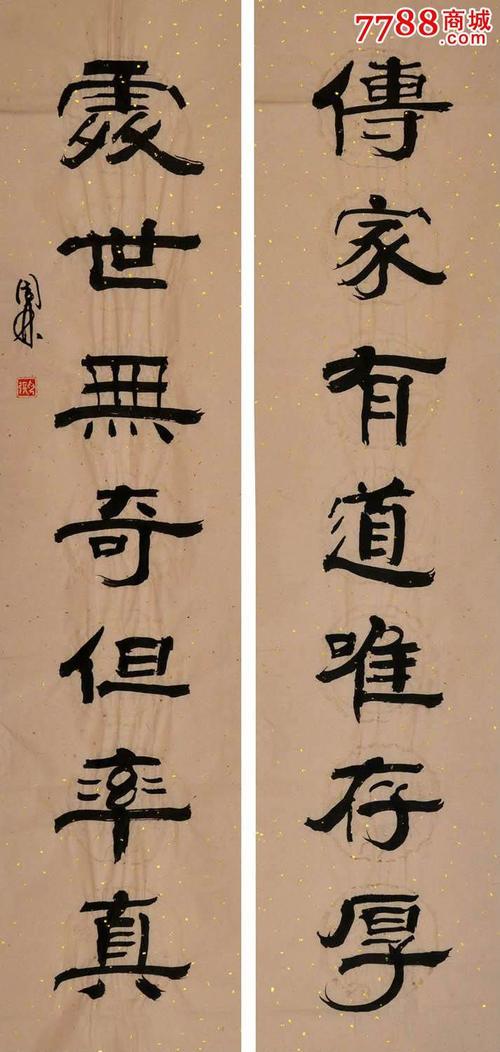 7788商城
.com
傳家有道唯存厚
處世無奇但率真